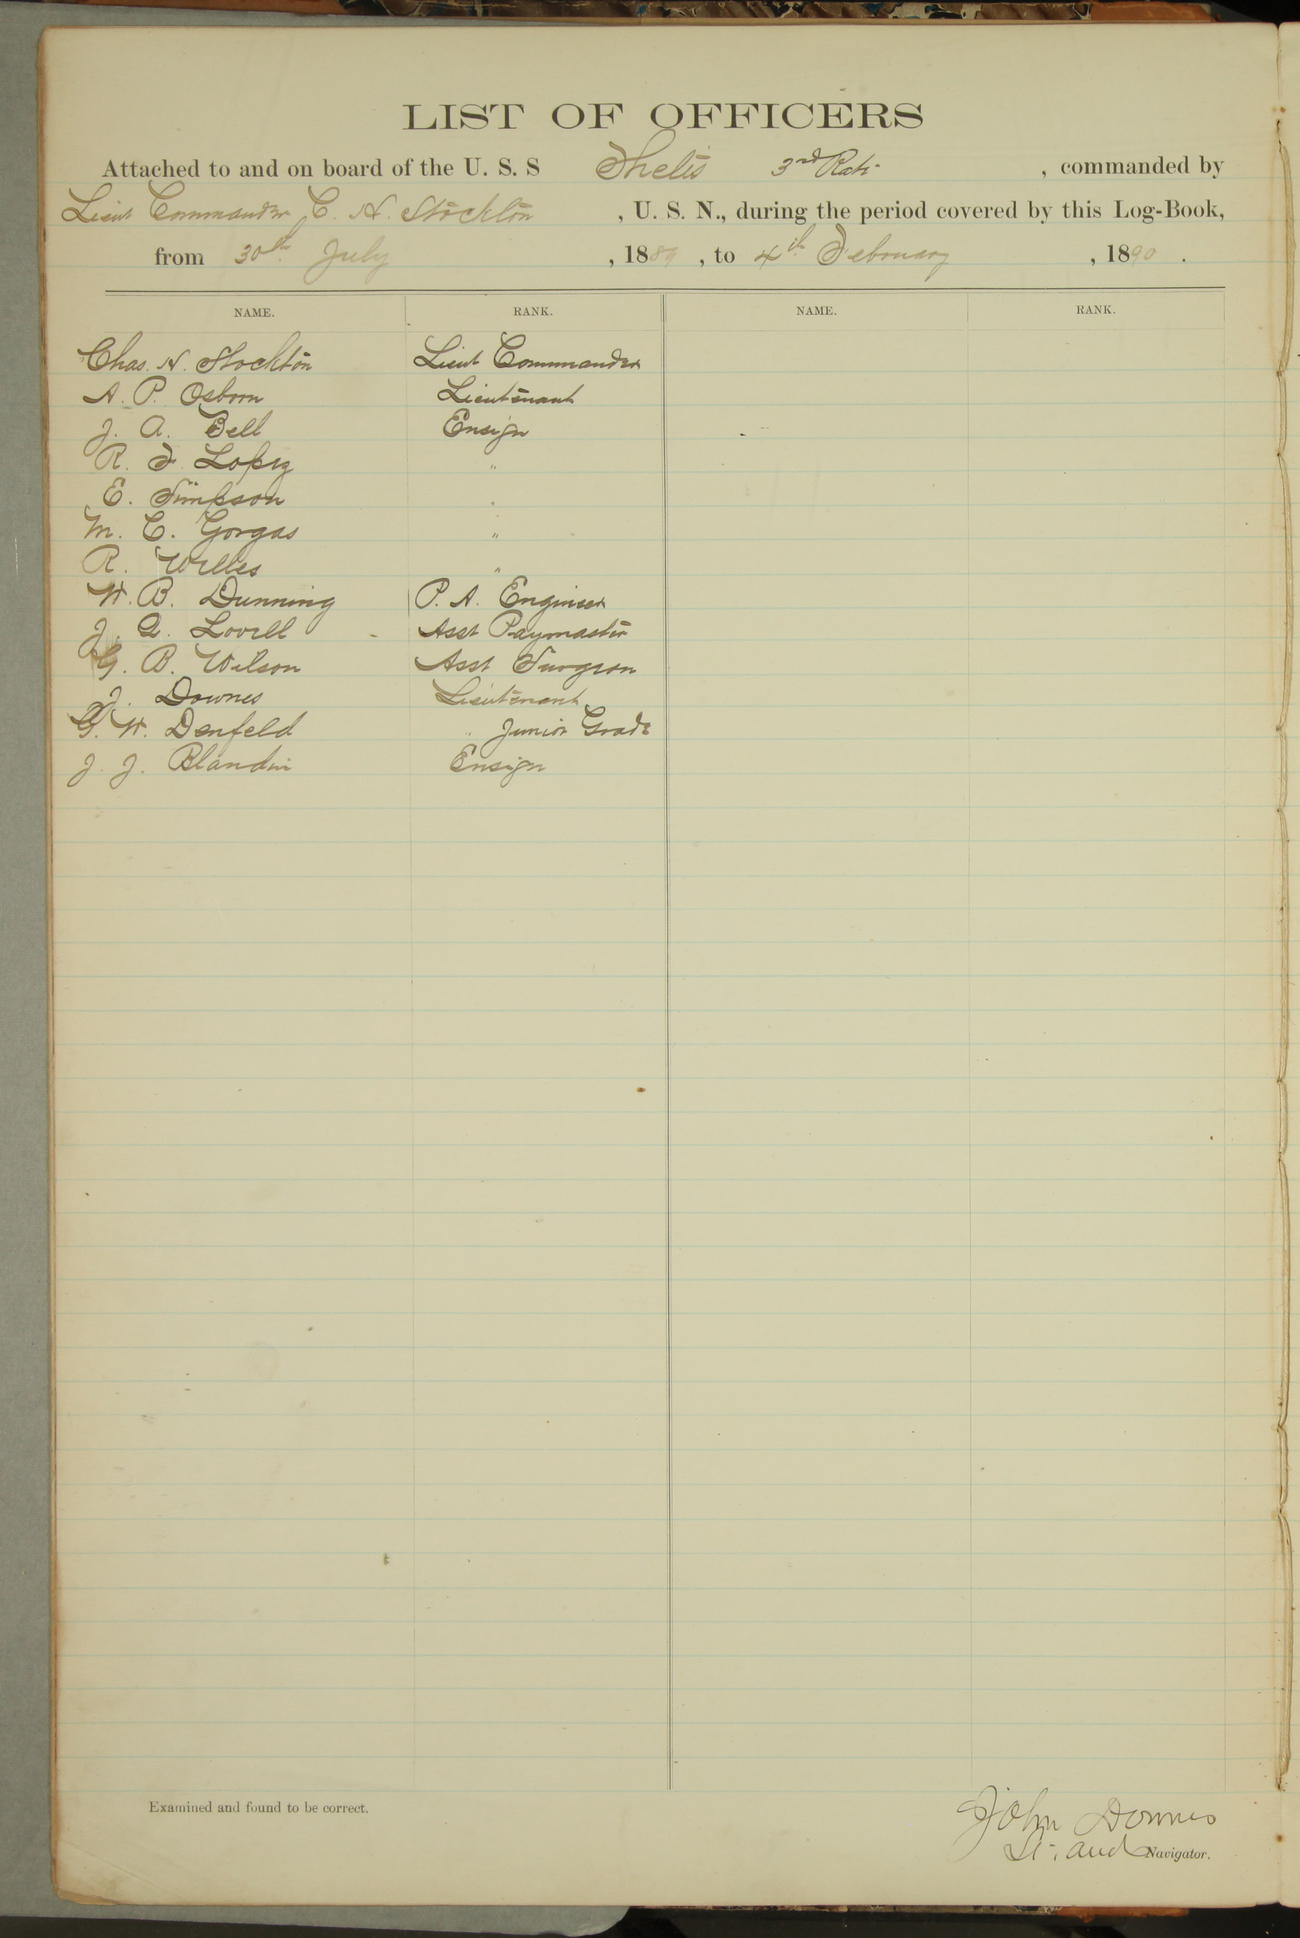 LIST OF OFFICERS
Attached to and on board of the U. S. S Thetis 3rd Rate , commanded by
Lieut Commander C. H. Stockton , U. S. N., during the period covered by this Log-Book,
from 30th July , 1889 , to 4th February , 1890 .
NAME. RANK. NAME. RANK.
Chas. H. Stockton Lieut Commander
A. P. Osborn Lieutenant
J. A. Bell Ensign
R. F Lopez "
E. Simpson "
M. C. Gorgas "
R. Welles "
W. B. Dunning P. A. Engineer
J. Q. Lovell Asst Paymaster
G. B. Wilson Asst Surgeon
J. Downes Lieutenant
G. W. Denfeld " Junior Grade
J. J. Blandin Ensign
Examined and found to be correct.
John Downes
Lt. and Navigator.